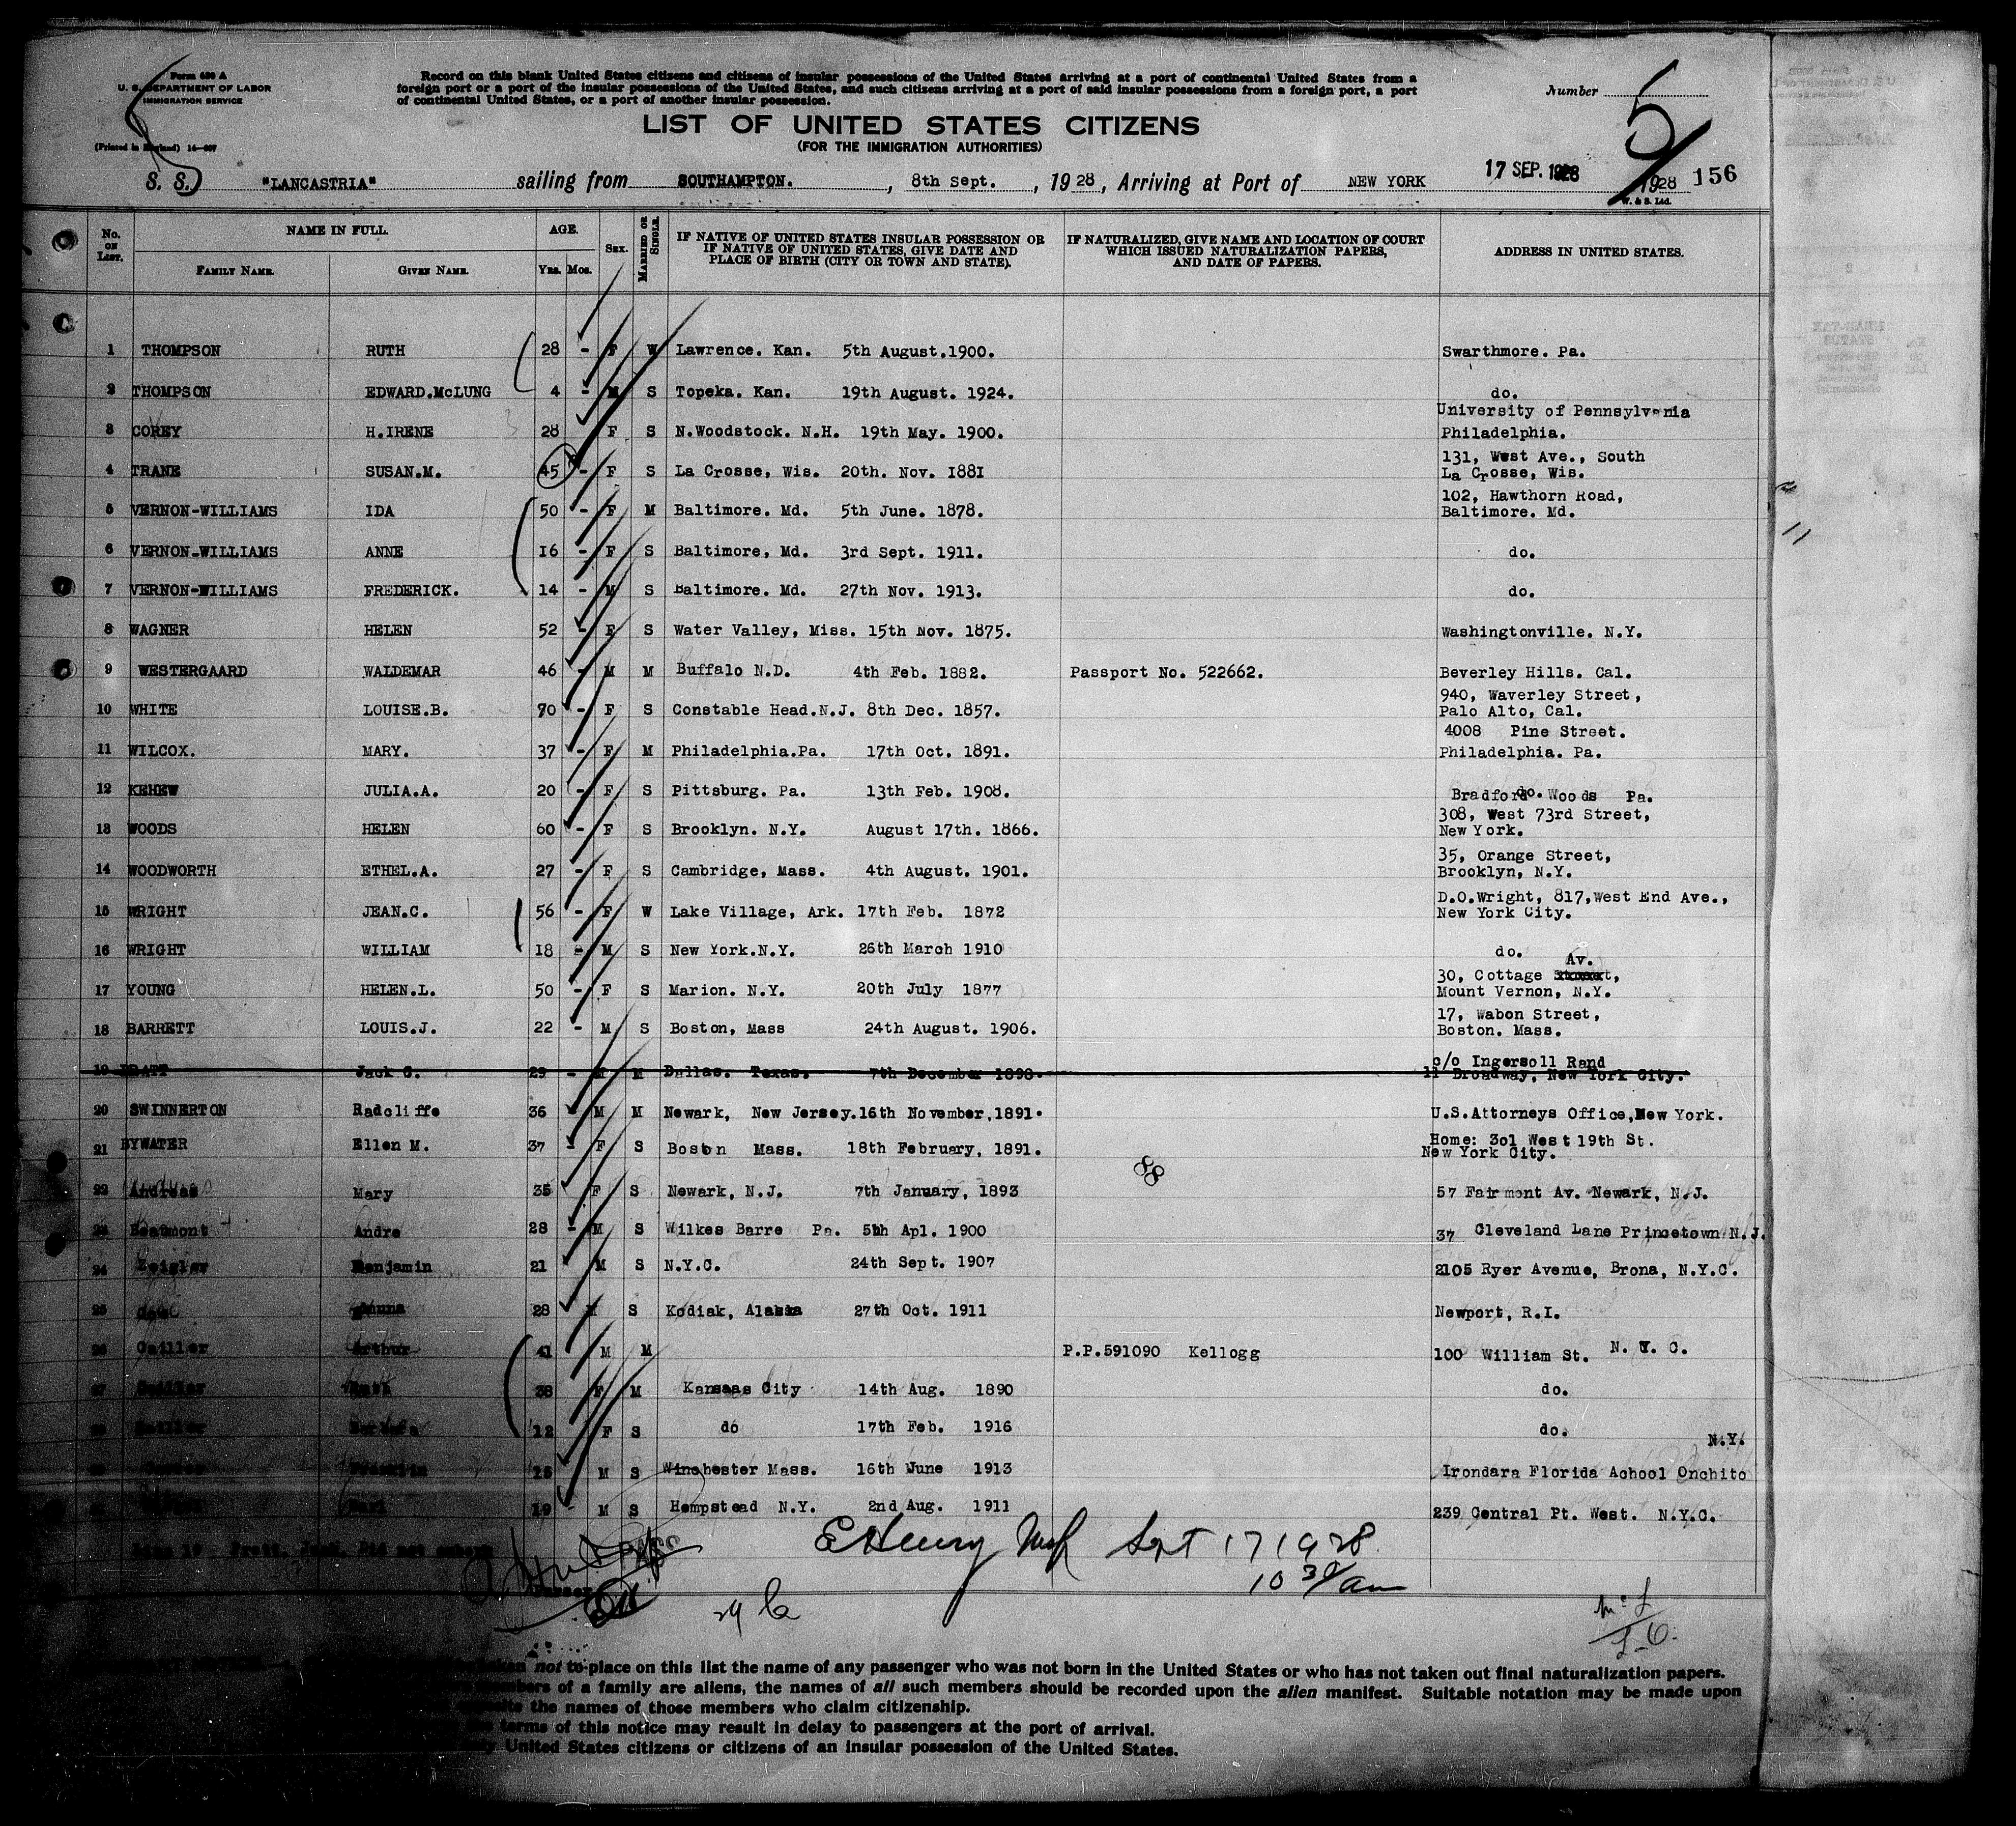 Form 630 A
U. S. DEPARTMENT OF LABOR
IMMIGRATION SERVICE
(Printed in England)
Record on this blank United States citizens and citizens of insular possessions of the United States arriving at a port of continental United States from a
foreign port or a port of the insular possessions of the United States, and such citizens arriving at a port of said insular possessions from a foreign port, a port
of continental United States, or a port of another insular possession.
Number 5
LIST OF UNITED STATES CITIZENS
(FOR THE IMMIGRATION AUTHORITIES)
S. S. "LANCASTRIA" sailing from SOUTHAMPTON. , 8th Sept. , 1928, Arriving at Port of NEW YORK 17 SEP. 1928 1928 156
W. & S. Ltd.
No. ON LIST. NAME IN FULL. AGE. SEX. MARRIED OR SINGLE. IF NATIVE OF UNITED STATES INSULAR POSSESSION OR IF NATIVE OF UNITED STATES, GIVE DATE AND PLACE OF BIRTH (CITY OR TOWN AND STATE). IF NATURALIZED, GIVE NAME AND LOCATION OF COURT WHICH ISSUED NATURALIZATION PAPERS, AND DATE OF PAPERS. ADDRESS IN UNITED STATES.
FAMILY NAME. GIVEN NAME. YRS. MOS.
1 THOMPSON RUTH 28 - F W Lawrence. Kan. 5th August.1900. Swarthmore. Pa.
2 THOMPSON EDWARD.McLUNG 4 - M S Topeka. Kan. 19th August. 1924. do.
3 COREY H.IRENE 28 F S N.Woodstock. N.H. 19th May. 1900. University of Pennsylvania Philadelphia.
4 TRANE SUSAN.M. 45 - F S La Crosse, Wis. 20th. Nov. 1881 131, West Ave., South La Crosse, Wis.
5 VERNON-WILLIAMS IDA 50 - F M Baltimore. Md. 5th June. 1878. 102, Hawthorn Road, Baltimore. Md.
6 VERNON-WILLIAMS ANNE 16 - F S Baltimore, Md. 3rd Sept. 1911. do.
7 VERNON-WILLIAMS FREDERICK. 14 - M S Baltimore. Md. 27th Nov. 1913. do.
8 WAGNER HELEN 52 - F S Water Valley, Miss. 15th Nov. 1875. Washingtonville. N.Y.
9 WESTERGAARD WALDEMAR 46 - M M Buffalo N.D. 4th Feb. 1882. Passport No. 522662. Beverley Hills. Cal.
10 WHITE LOUISE.B. 70 - F S Constable Head.N.J. 8th Dec. 1857. 940, Waverley Street, Palo Alto, Cal.
11 WILCOX. MARY. 37 - F M Philadelphia.Pa. 17th Oct. 1891. 4008 Pine Street. Philadelphia. Pa.
12 KEHEW JULIA.A. 20 - F S Pittsburg. Pa. 13th Feb. 1908. do. Bradford Woods Pa.
13 WOODS HELEN 60 - F S Brooklyn. N.Y. August 17th. 1866. 308, West 73rd Street, New York.
14 WOODWORTH ETHEL.A. 27 - F S Cambridge, Mass. 4th August. 1901. 35, Orange Street, Brooklyn, N.Y.
15 WRIGHT JEAN.C. 56 - F W Lake Village, Ark. 17th Feb. 1872 D.O.Wright, 817,West End Ave., New York City.
16 WRIGHT WILLIAM 18 - M S New York.N.Y. 26th March 1910 do.
17 YOUNG HELEN.L. 50 - F S Marion. N.Y. 20th July 1877 30, Cottage Street, Av. Mount Vernon, N.Y.
18 BARRETT LOUIS.J. 22 - M S Boston, Mass 24th August. 1906. 17, Wabon Street, Boston. Mass.
19 PRATT Jack C. 29 - M M Dallas. Texas. 7th December 1898. c/o Ingersoll Rand 11 Broadway, New York City.
20 SWINNERTON Radcliffe 36 M M Newark, New Jersey.16th November,1891. U.S.Attorneys Office,New York.
21 BYWATER Ellen M. 37 - F S Boston Mass. 18th February, 1891. Home: 301 West 19th St. New York City.
22 Andreas Mary 35 F S Newark, N.J. 7th January, 1893 57 Fairmont Av. Newark, N.J.
23 Beatmont Andre 28 - M S Wilkes Barre Pa. 5th Apl. 1900 37 Cleveland Lane Princetown N.J.
24 Zeigler Benjamin 21 M S N.Y.C. 24th Sept. 1907 2105 Ryer Avenue, Brona, N.Y.C.
25 28 S Kodiak, Alaska 27th Oct. 1911 Newport, R.I.
26 Cailler Arthur 41 M M P.P.591090 Kellogg 100 William St. N.Y.C.
27 38 F M Kansaas City 14th Aug. 1890 do.
12 F S do 17th Feb. 1916 do.
15 M S Winchester Mass. 16th June 1913 Irondara Florida Achool Onchito N.Y.
19 - M S Hempstead N.Y. 2nd Aug. 1911 239 Central Pt. West. N.Y.C.
Line 19 Pratt, Jack. Did not embark
E Henry Sept 17 1928
10 30/am
not to place on this list the name of any passenger who was not born in the United States or who has not taken out final naturalization papers.
members of a family are aliens, the names of all such members should be recorded upon the alien manifest. Suitable notation may be made upon
opposite the names of those members who claim citizenship.
the terms of this notice may result in delay to passengers at the port of arrival.
only United States citizens or citizens of an insular possession of the United States.